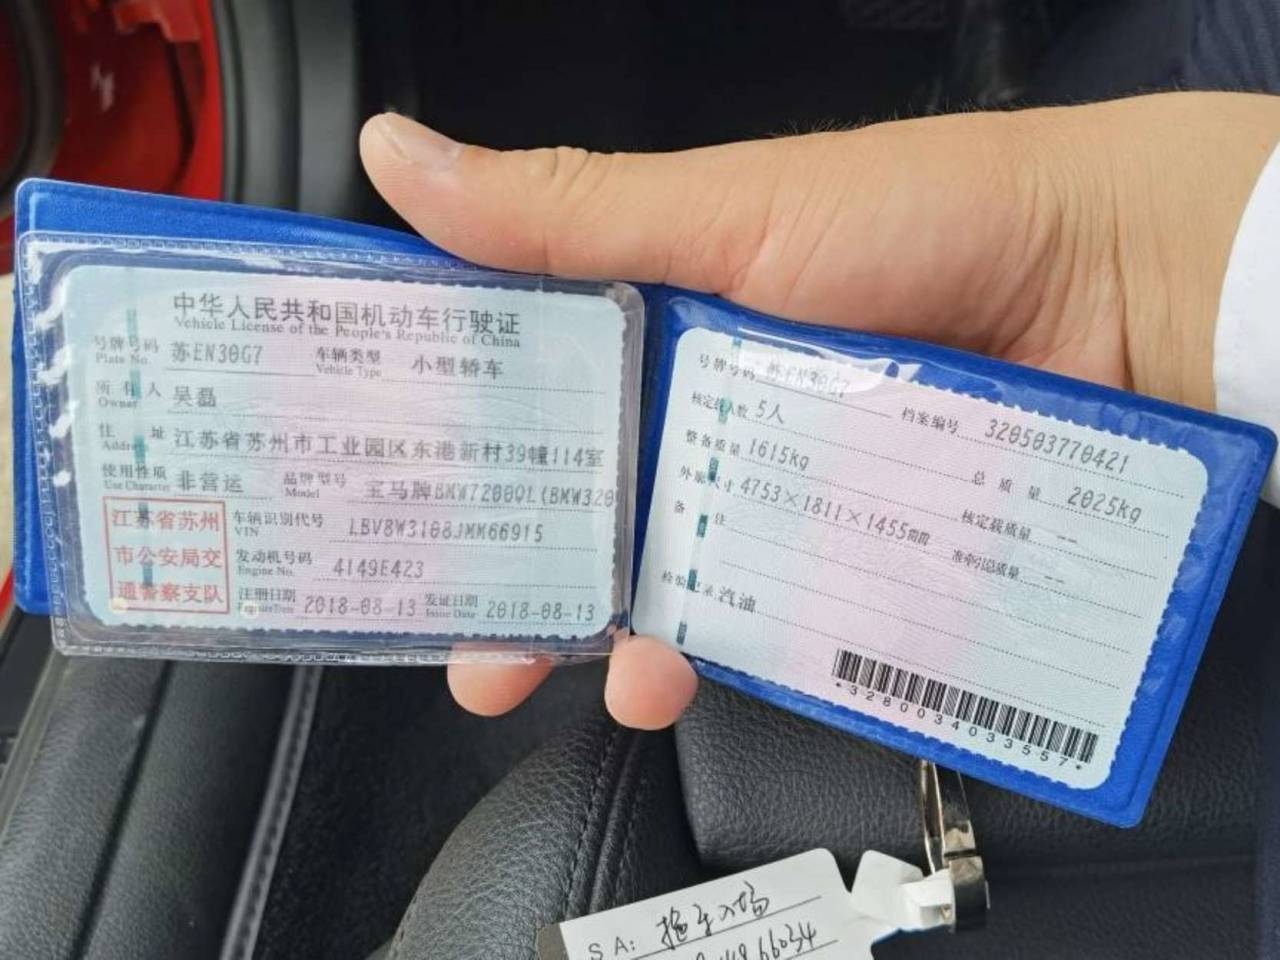 中华人民共和国机动车行驶证
Vehicle License of the People's Republic of China
号牌号码 苏EN30G7 车辆类型 小型轿车
Plate No. Vehicle Type
所有人 吴磊
Owner
住址 江苏省苏州市工业园区东港新村39幢114室
Address
使用性质 非营运 品牌型号 宝马牌BMW7200QL(BMW320
Use Character Model
江苏省苏州
市公安局交
通警察支队
车辆识别代号 LBV8W3108JMM66915
VIN
发动机号码 4149E423
Engine No.
注册日期 2018-08-13 发证日期 2018-08-13
Register Date Issue Date
号牌号码 苏EN30G7 档案编号 320503770421
核定载人数 5人 总质量 2025kg
整备质量 1615kg 核定载质量 --
外廓尺寸 4753×1811×1455 准牵引总质量 --
备注
检验记录 汽油
*3280034033557*
SA: 拖车入场
66034